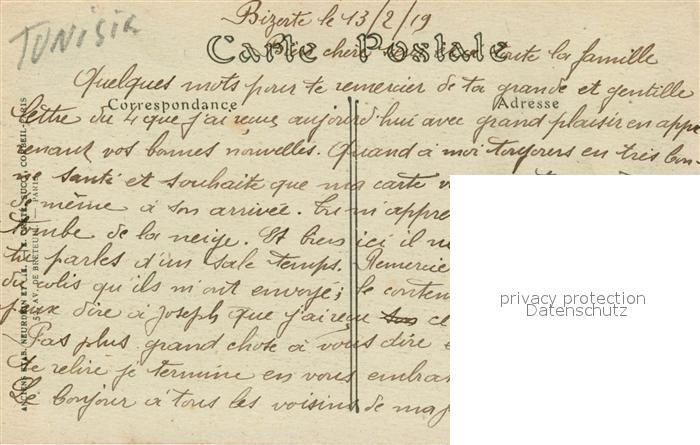 TUNISIE
Bizerte le 13/2/19
Carte Postale
Bien chère toute la famille
Quelques mots pour te remercier de ta grande et gentille
Correspondance
Adresse
lettre du 4 que j'ai reçue aujourd'hui avec grand plaisir en appre
enant vos bonnes nouvelles. Quand à moi toujours en très bon-
ne santé et souhaite que ma carte
de même à son arrivée. Tu m'appre
tombe de la neige. Et bien ici il
tu parles d'un sale temps. Remercie
du colis qu'ils m'ont envoyé; le conten
peux dire à Joseph que j'ai reçu
Pas plus grand chose à vous dire
te relire je termine en vous embras
Le bonjour à tous les voisins de ma
ANCIENS ETAB. NEURDEIN ET CIE. E. CRÉTÉ, SUCC. CORBEIL-PARIS
52, AV. DE BRETEUIL — PARIS
privacy protection
Datenschutz